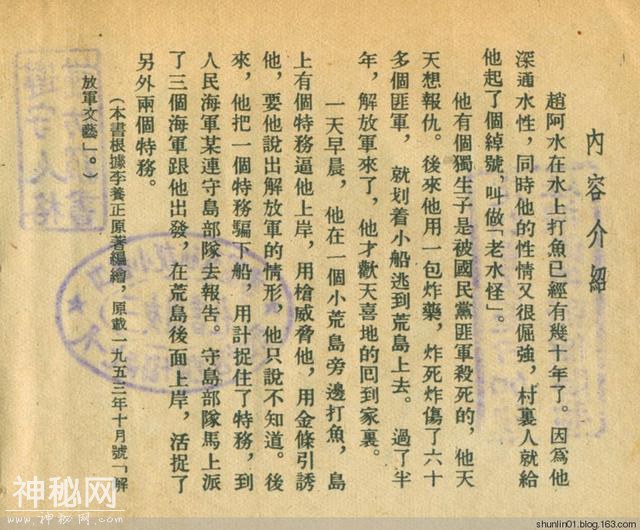 內容介紹
趙阿水在水上打魚已經有幾十年了。因為他
深通水性，同時他的性情又很倔強，村裏人就給
他起了個綽號，叫做「老水怪」。
他有個獨生子是被國民黨匪軍殺死的，他天
天想報仇。後來他用一包炸藥，炸死炸傷了六十
多個匪軍，就划着小船逃到荒島上去。過了半
年，解放軍來了，他才歡天喜地的回到家裏。
一天早晨，他在一個小荒島旁邊打魚，島
上有個特務逼他上岸，用槍威脅他，用金條引誘
他，要他說出解放軍的情形，他只說不知道。後
來，他把一個特務騙下船，用計捉住了特務，到
人民海軍某連守島部隊去報告。守島部隊馬上派
了三個海軍跟他出發，在荒島後面上岸，活捉了
另外兩個特務。
(本書根據李養正原著編繪，原載一九五三年十月號「解
放軍文藝」。)
神秘网
shunlin01.blog.163.com